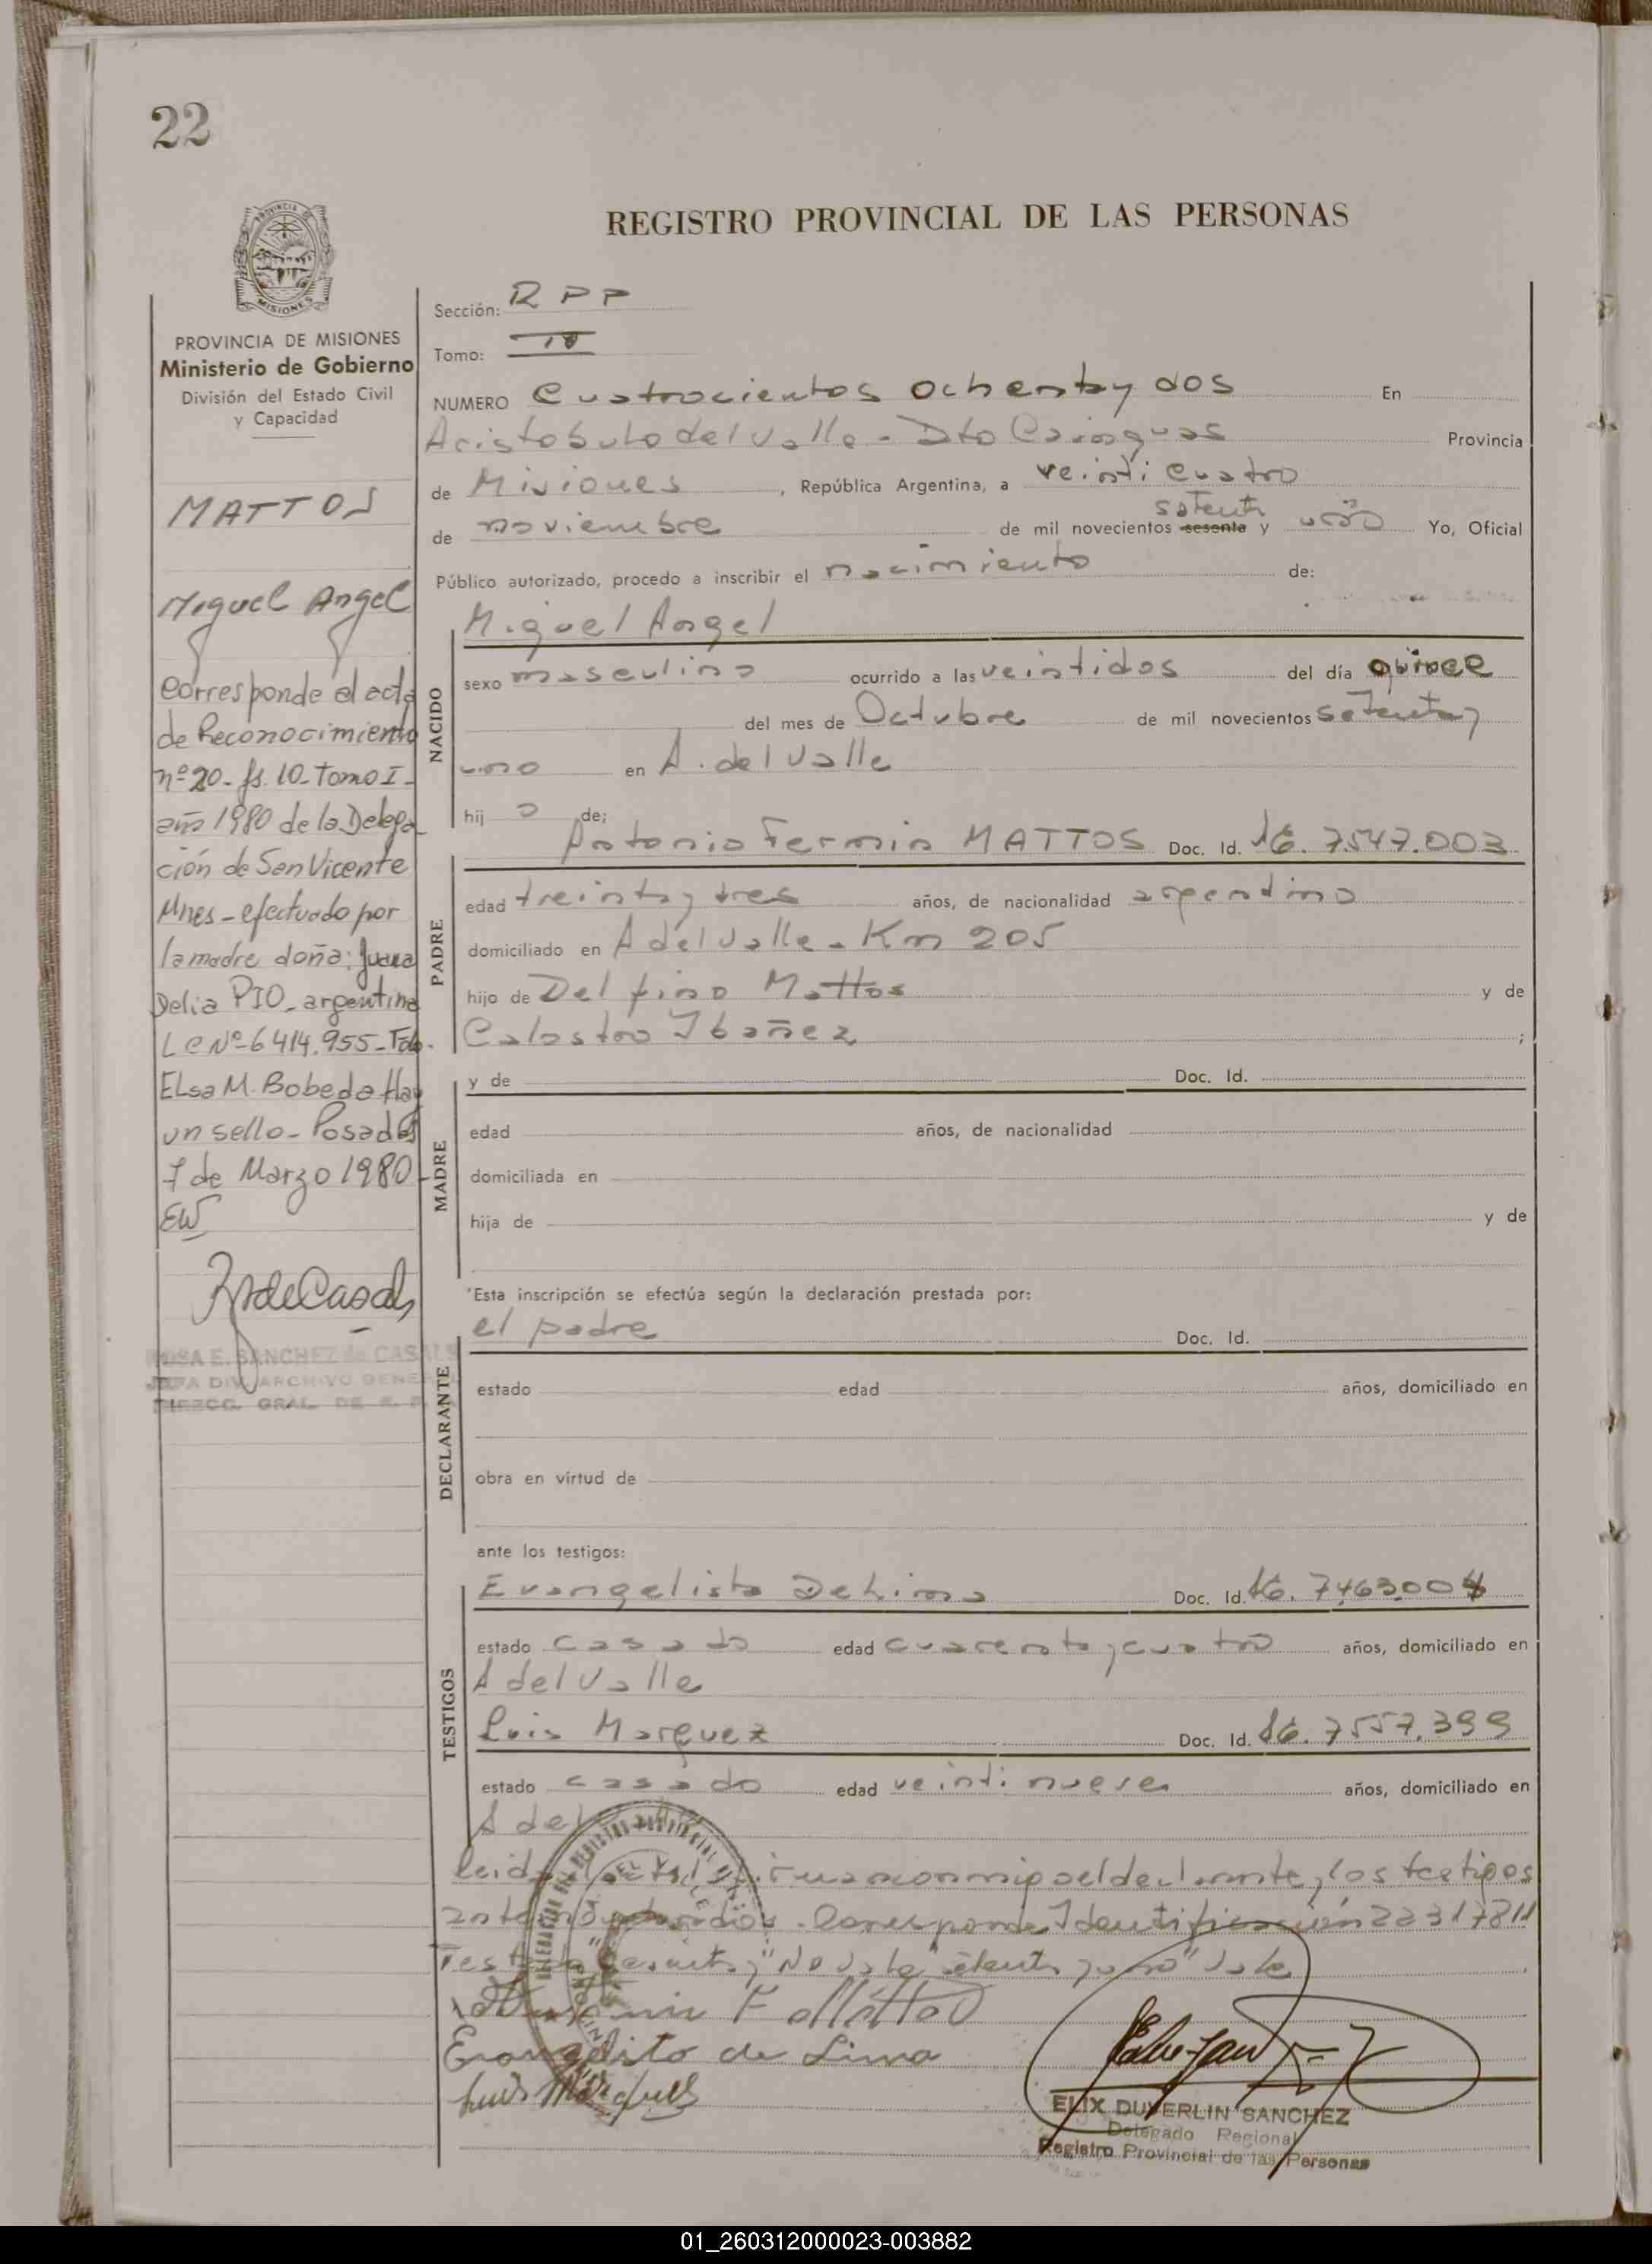 22
PROVINCIA DE
MISIONES
REGISTRO PROVINCIAL DE LAS PERSONAS
PROVINCIA DE MISIONES
Ministerio de Gobierno
División del Estado Civil
y Capacidad
MATTOS
Miguel Angel
Corresponde el acta
de Reconocimiento
nº 20- fs. 10- Tomo I-
año 1980 de la Delega
ción de San Vicente
Mnes - efectuado por
la madre doña: Juana
Delia PIO - argentina
LC Nº 6414.955 - Fdo.
Elsa M. Bobeda Hay
un sello - Posadas
7 de Marzo 1980 -
EW
ROSA E. SANCHEZ de CASALS
JEFA DIV. ARCHIVO GENERAL
DIRECC. GRAL. DE R. P.
Sección: R P P
Tomo: IV
NUMERO Cuatrocientos ochenta y dos En
Aristobulo del Valle - Dto Cainguas Provincia
de Misiones, República Argentina, a veinti cuatro
de noviembre de mil novecientos sesenta setenta y uno Yo, Oficial
Público autorizado, procedo a inscribir el nacimiento de:
Miguel Angel
NACIDO
sexo masculino ocurrido a las veintidos del día quince
del mes de Octubre de mil novecientos setenta y
uno en A. del Valle
hij o de;
Antonio Fermin MATTOS Doc. Id. 7547.003
PADRE
edad treinta y tres años, de nacionalidad argentino
domiciliado en A del Valle - Km 205
hijo de Delfino Mattos y de
Ibañez ;
MADRE
y de Doc. Id.
edad años, de nacionalidad
domiciliada en
hija de y de
Esta inscripción se efectúa según la declaración prestada por:
el padre Doc. Id.
DECLARANTE
estado edad años, domiciliado en
obra en virtud de
ante los testigos:
TESTIGOS
Evangelista DeLima Doc. Id. 7463.004
estado casado edad cuarenta y cuatro años, domiciliado en
A del Valle
Luis Marquez Doc. Id. 7557.399
estado casado edad veintinueve años, domiciliado en
A del
leida el acta firman conmigo el declarante, los testigos
antes nombrados. Corresponde Identificación 22317811
Testado "sesenta y" No vale "setenta y uno" Vale
F Mattos
Evangelista de Lima
Luis Marques
ELIX DUVERLIN SANCHEZ
Delegado Regional
Registro Provincial de las Personas
01_260312000023-003882